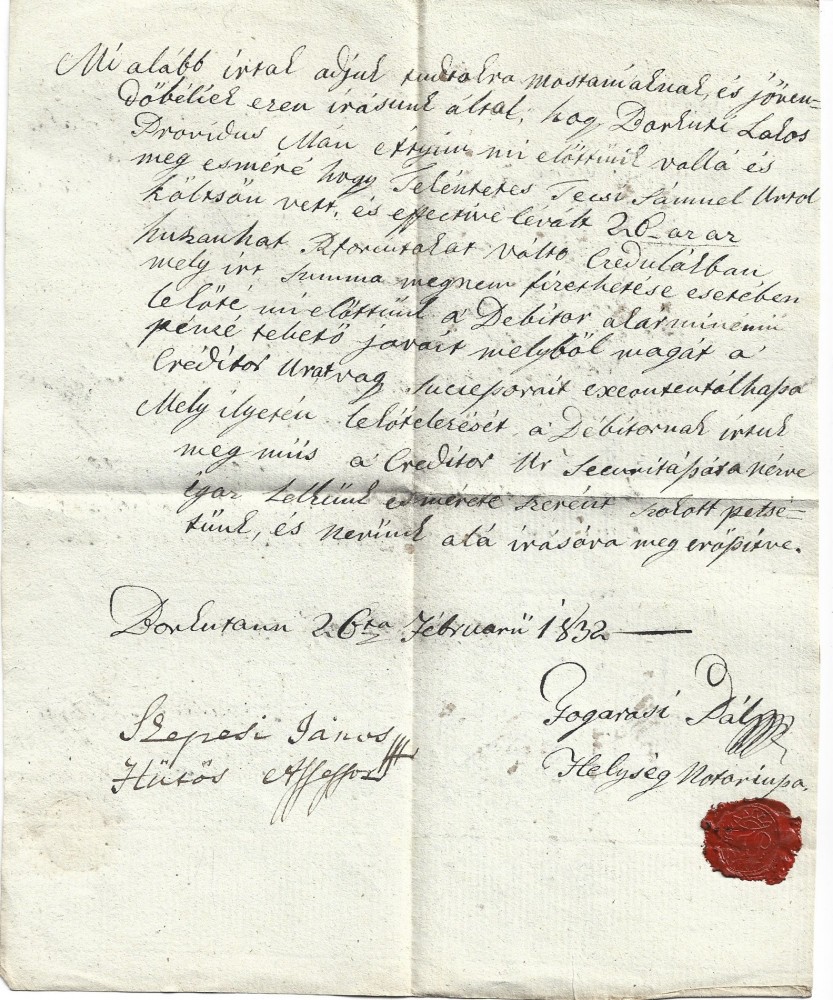 Mi alább írtak adjuk tudtokra mostaniaknak, és jöven-
dőbéliek ezen írásunk által, hogy Borkuti Lakos
Providus Mán mi előttünk vallá és
meg esméré hogy Teléntetes Tecsi Sámuel Urtol
költsön vett, és effective lévált 26 az az
huszanhat Rforintokat válto Credulákban
mely írt summa megnem fizethetése esetében
lekőté mi előttünk a Debitor akarminémü
pénzé tehető javait melyből magát a
Créditor Urat vag Sucсeßorait executentálhaßa
Mely ilyetén lekötelezését a Débitornak írtuk
meg müis a Creditor Ur Securitaßára nézve
igaz Lelkünk esmérete szerént szokott petsé=
tünk, és nevünk alá írására meg erőßitve.
Borkutann 26ta Februarű 1832
Fogarasi Pál
Helység Notariußa.
Szepesi János
Hütös Assessor